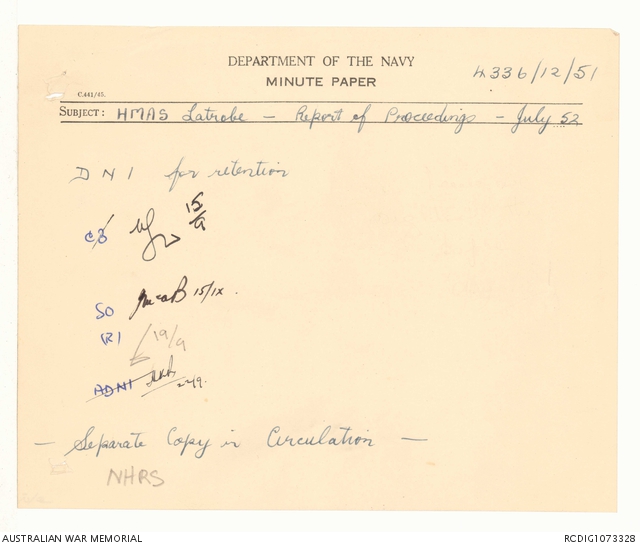 DEPARTMENT OF THE NAVY
MINUTE PAPER
4336/12/51
C.441/45.
SUBJECT: HMAS Latrobe — Report of Proceedings — July 52
DNI for retention
15/9
SO 15/IX.
(R)
19/9
ADNI
— Separate Copy in Circulation —
NHRS
AUSTRALIAN WAR MEMORIAL
RCDIG1073328